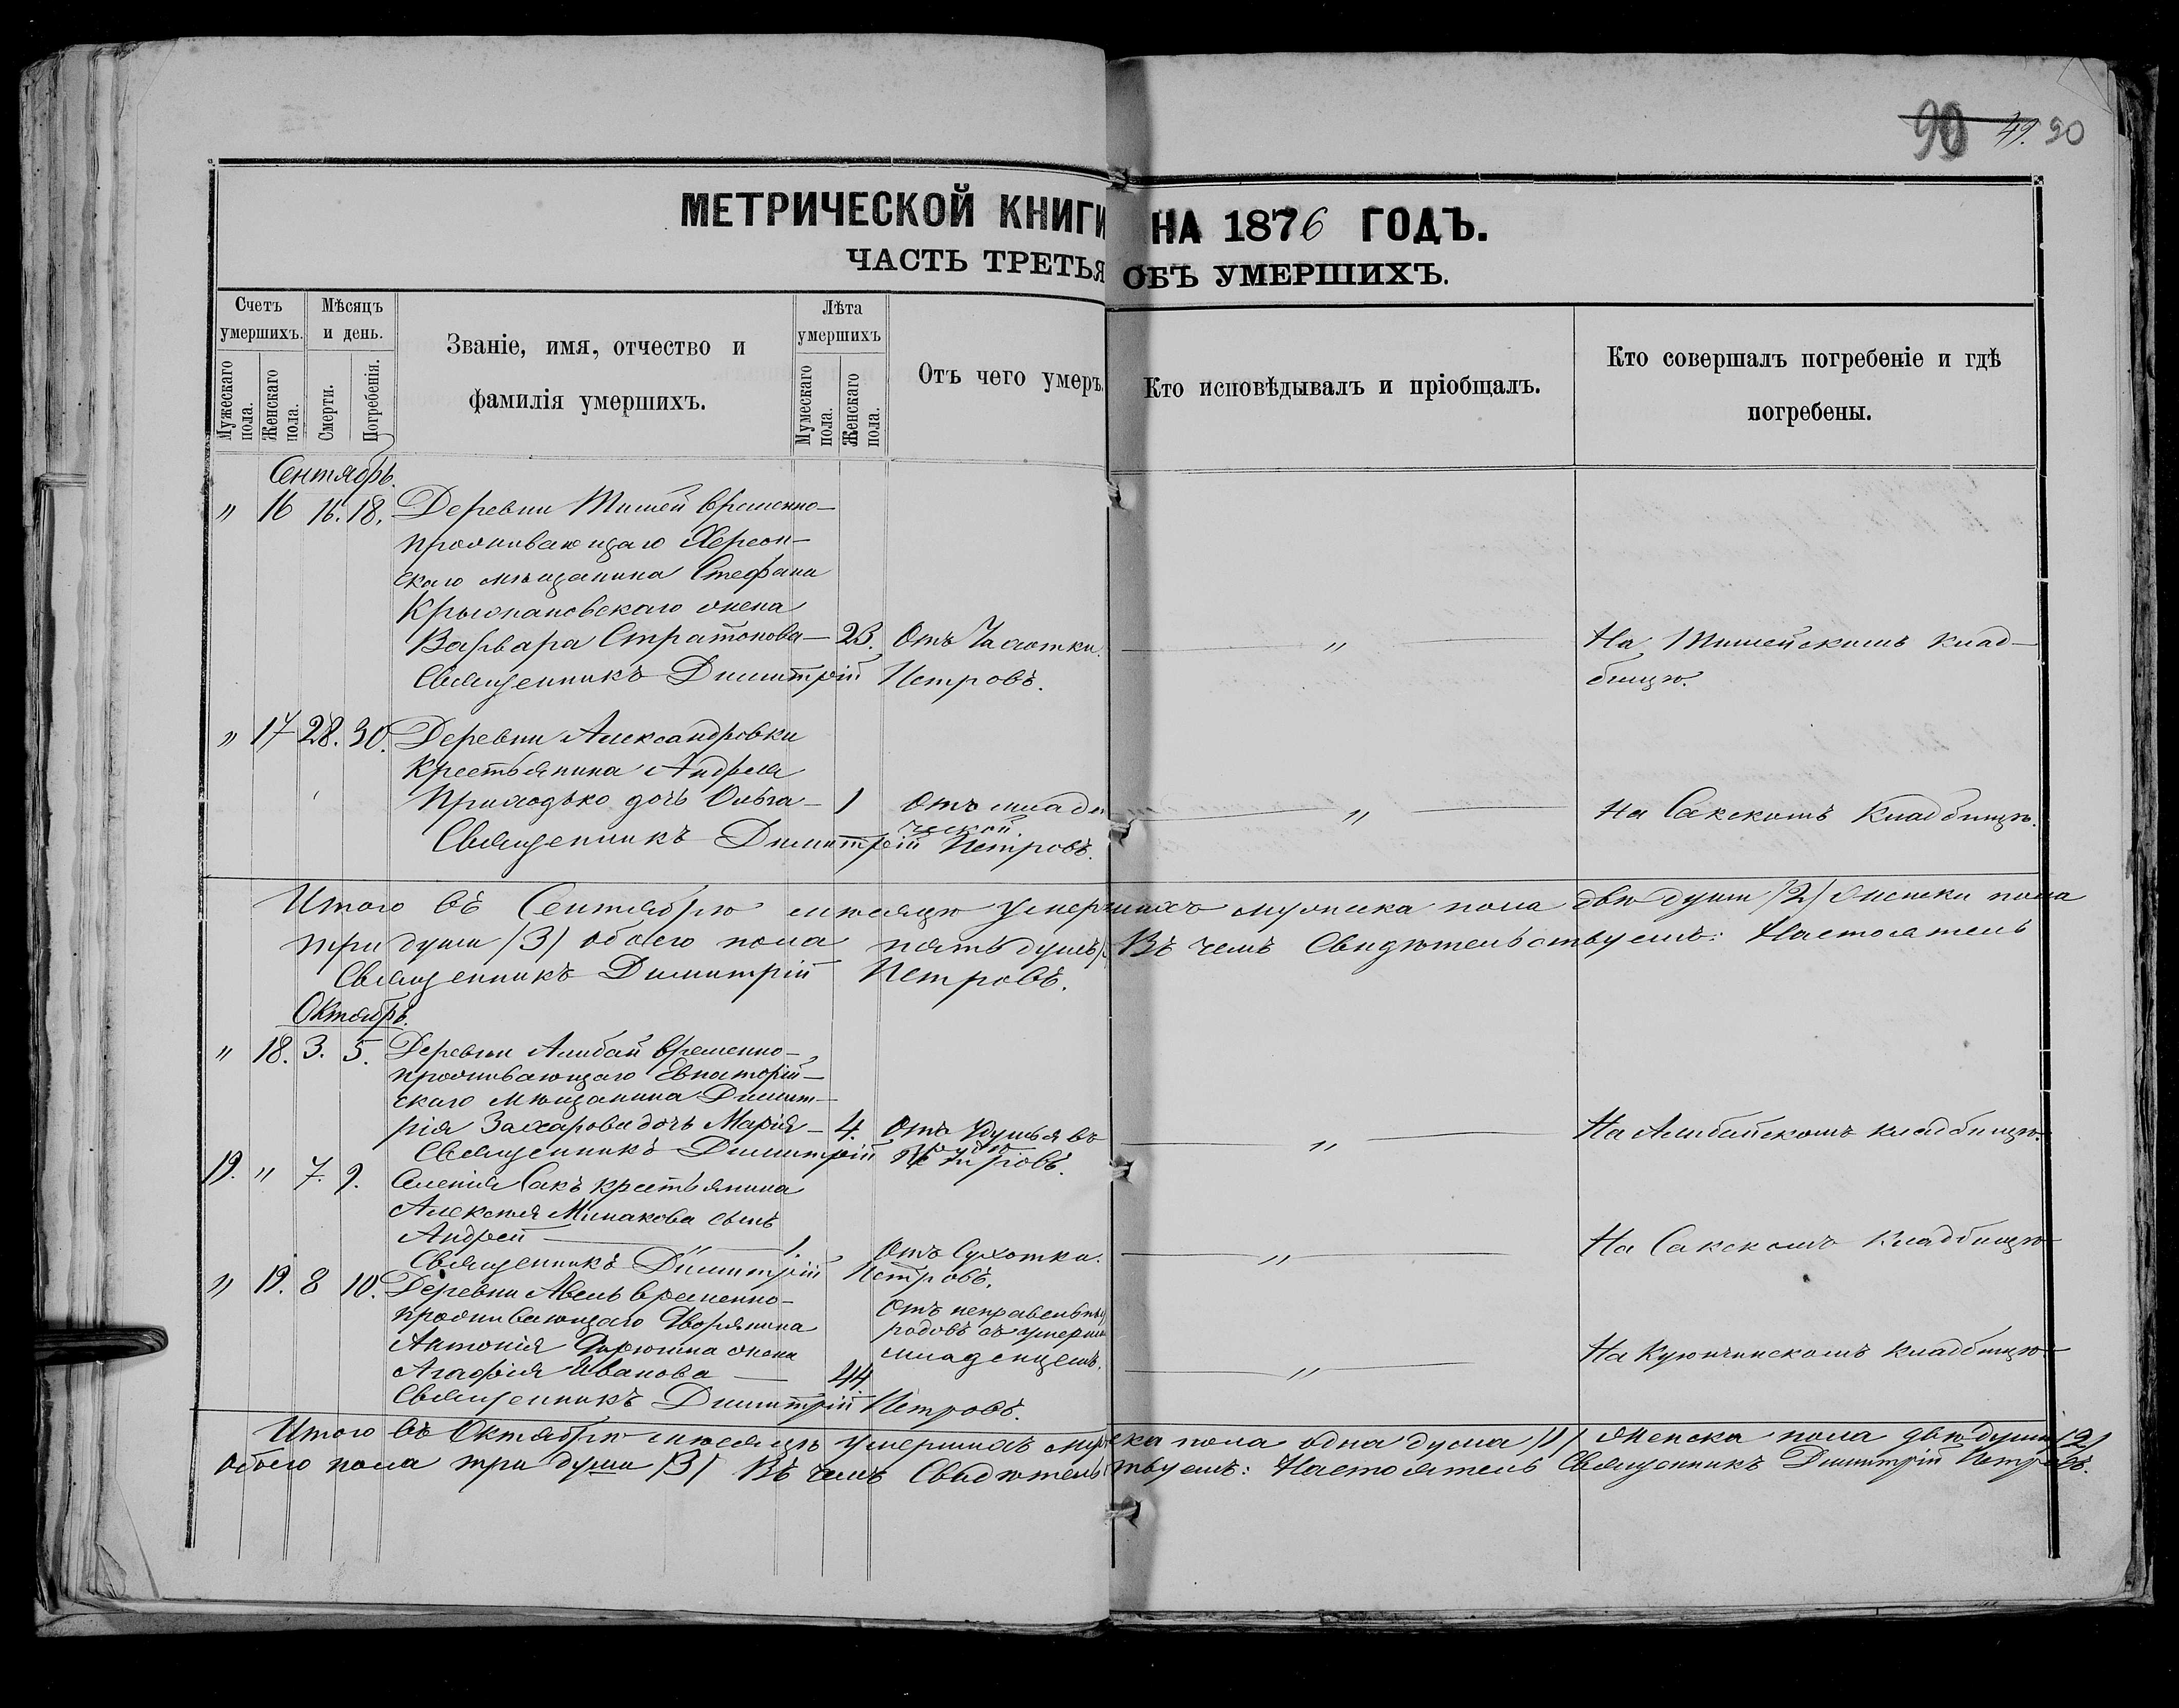 90 49. 90
МЕТРИЧЕСКОЙ КНИГИ НА 1876 ГОДЪ.
ЧАСТЬ ТРЕТЬЯ ОБЪ УМЕРШИХЪ.
Счетъ умершихъ.
Мужескаго пола.
Женскаго пола.
Мѣсяцъ и день.
Смерти.
Погребенія.
Званіе, имя, отчество и
фамилія умершихъ.
Лѣта умершихъ
Мумескаго пола.
Женскаго пола.
Отъ чего умеръ.
Кто исповѣдывалъ и пріобщалъ.
Кто совершалъ погребеніе и гдѣ
погребены.
Сентябрь.
" 16 16. 18. Деревни Тишей временно-
проживающаго Херсон-
скаго мѣщанина Стефана
Крыжановскаго жена
Варвара Стратонова - 23. Отъ Чахотки. " На Тишейскомъ клад-
Священникъ Димитрій Петровъ. бищѣ.
" 17 28. 30. Деревни Александровки
Крестьянина Андрея
Приходько дочь Ольга - 1 Отъ младен " На Сакскомъ Кладбищѣ.
ческой.
Священникъ Димитрій Петровъ.
Итого въ Сентябрѣ мѣсяцѣ умершихъ мужска пола двѣ души /2/ Женска пола
три души /3/ обоего пола пять душъ Въ чемъ Свидѣтельствуемъ: Настоятель
Священникъ Димитрій Петровъ.
Октябрь.
" 18. 3. 5. Деревни Алибай временно-
проживающаго Евпаторій-
скаго Мѣщанина Димит-
рія Захарова дочь Марія - 4. Отъ Удушья въ " На Алибайскомъ кладбищѣ.
Священникъ Димитрій Петровъ.
19. " 7. 9. Селенія Сакъ крестьянина
Алексѣя Минакова сынъ
Андрей " 1. Отъ Сухотки. " На Сакскомъ Кладбищѣ
Священникъ Димитрій Петровъ.
" 19. 8 10. Деревни Авель временно-
проживающаго Дворянина
Антонія жена
Агафія Иванова - 44 Отъ неправельны
родовъ съ умерши
младенцемъ. " На Куюнчинскомъ кладбищѣ
Священникъ Димитрій Петровъ.
Итого въ Октябрѣ мѣсяцѣ умершихъ мужска пола одна душа /1/ Женска пола двѣ души /2/
обоего пола три души /3/ Въ чемъ Свидѣтельствуемъ: Настоятель Священникъ Димитрій Петровъ.